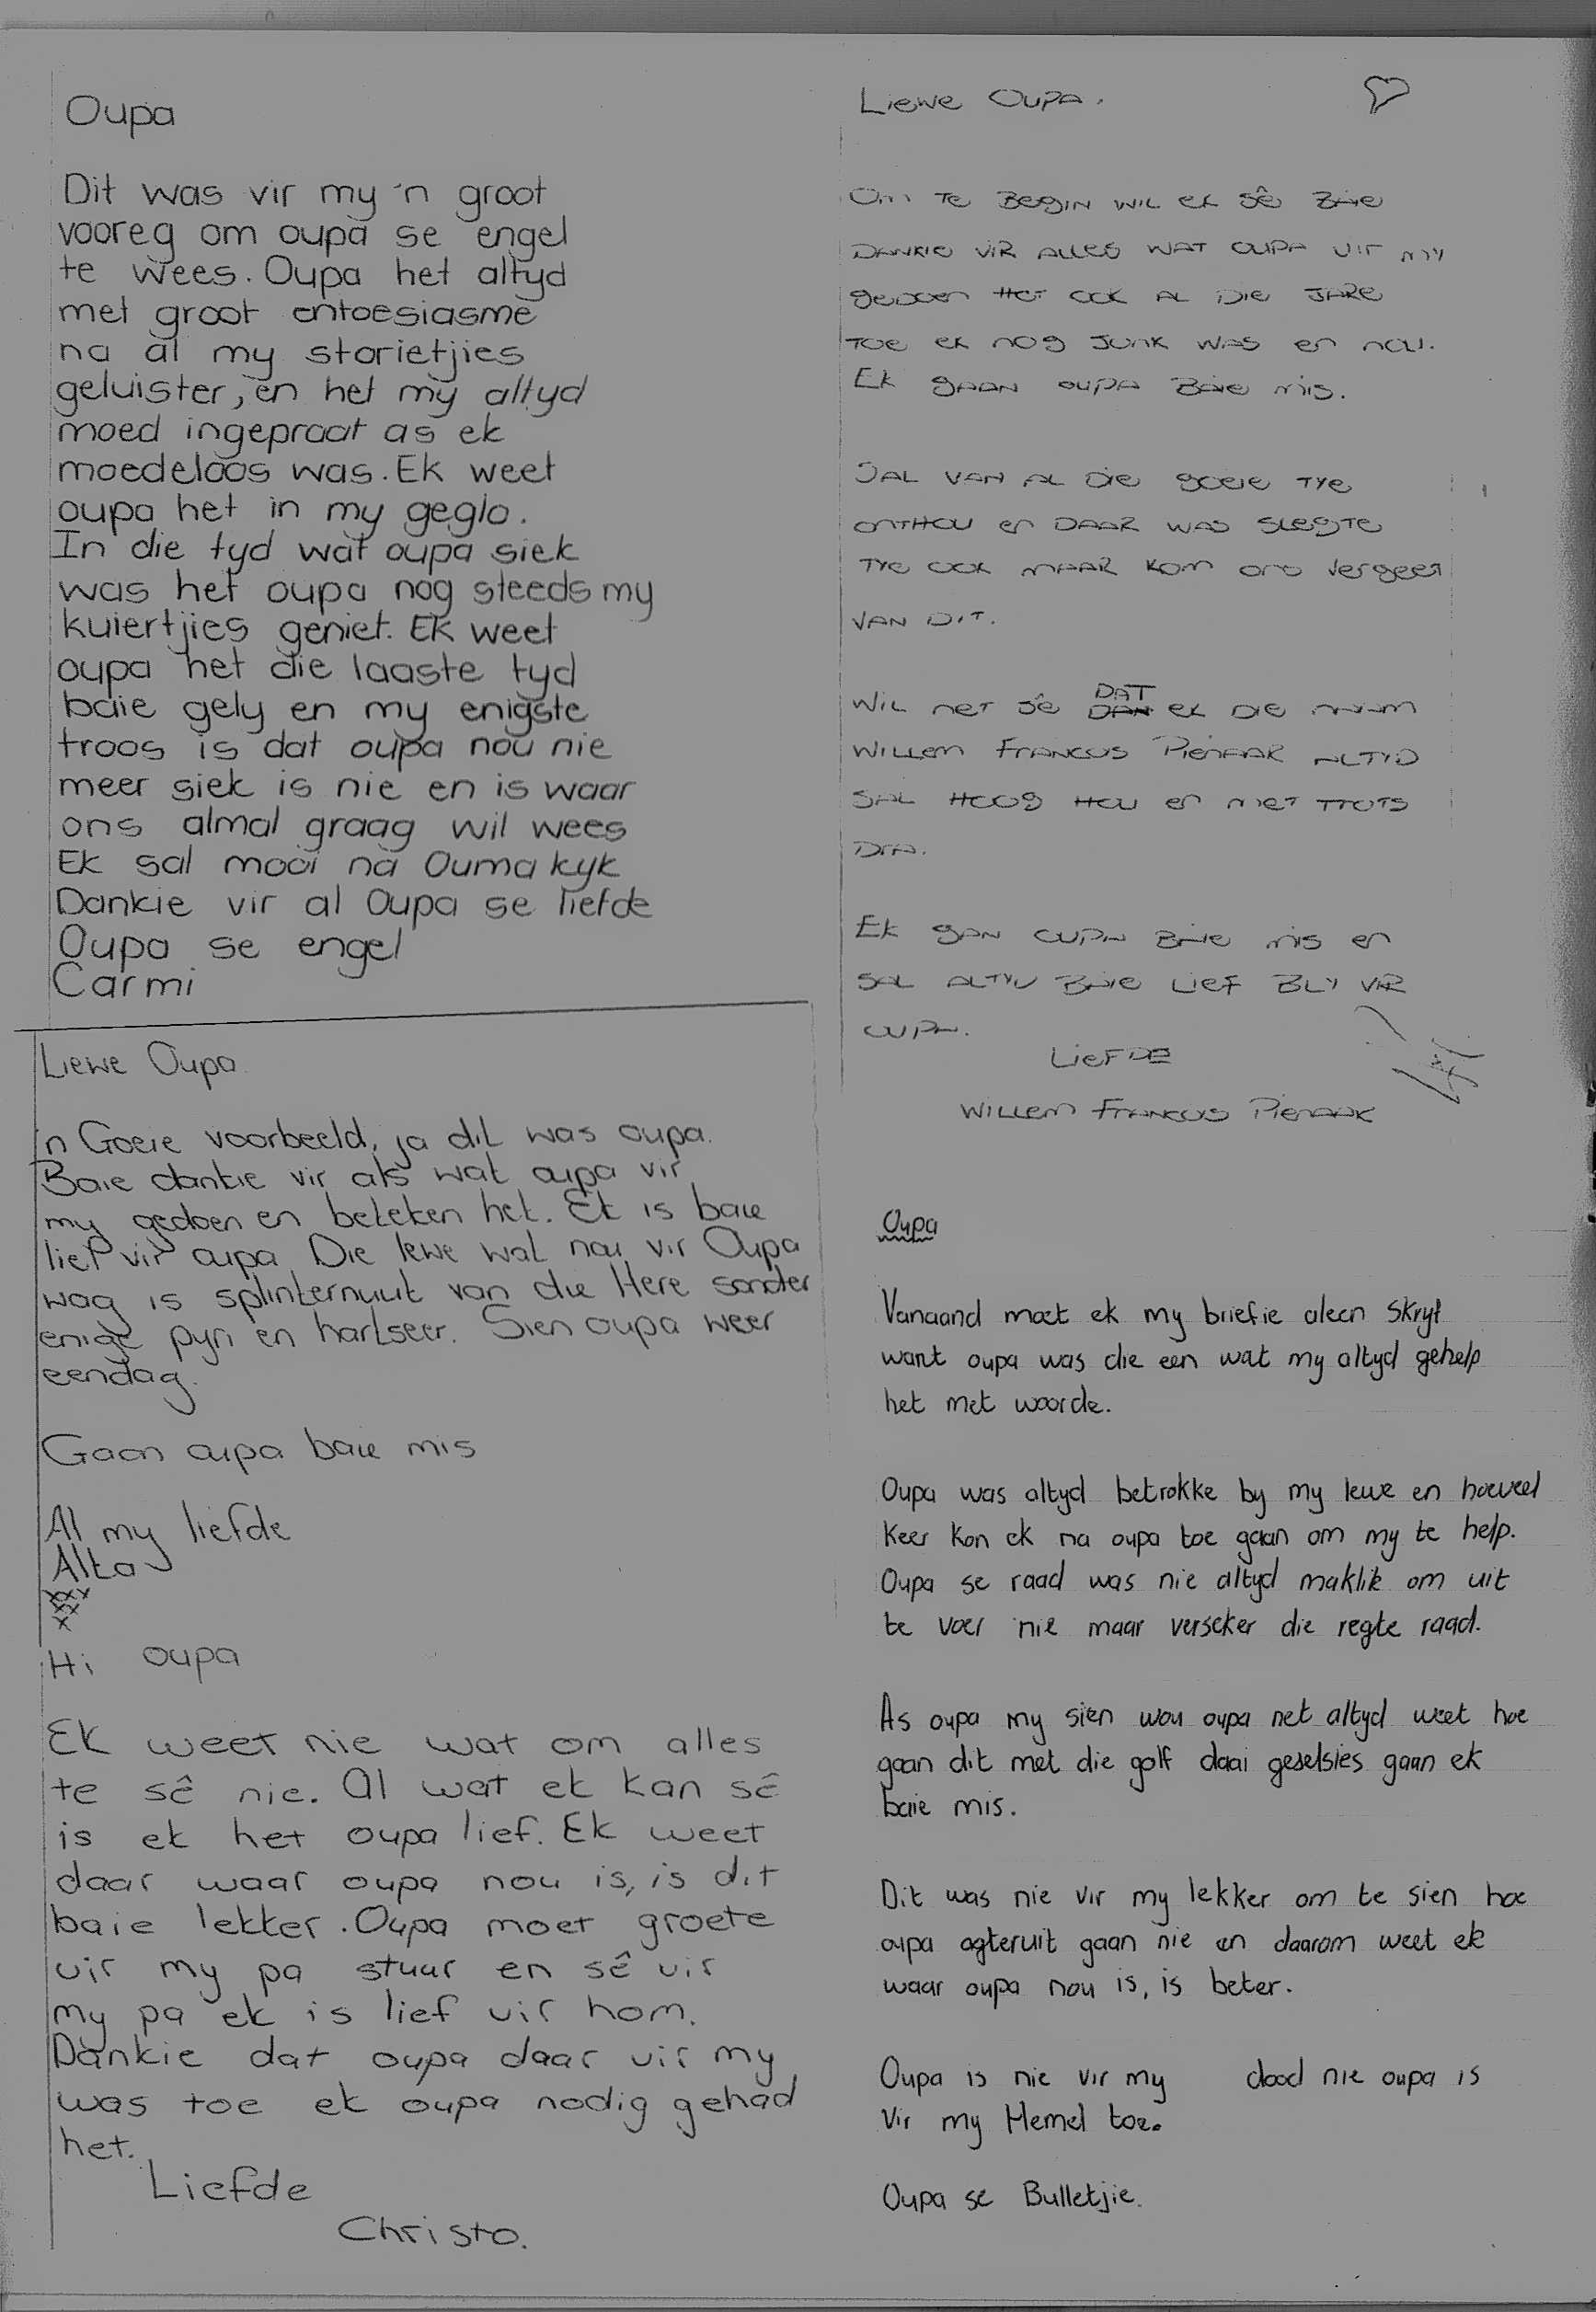 Oupa
Dit was vir my 'n groot
vooreg om oupa se engel
te wees. Oupa het altyd
met groot entoesiasme
na al my storietjies
geluister, en het my altyd
moed ingepraat as ek
moedeloos was. Ek weet
oupa het in my geglo.
In die tyd wat oupa siek
was het oupa nog steeds my
kuiertjies geniet. Ek weet
oupa het die laaste tyd
baie gely en my enigste
troos is dat oupa nou nie
meer siek is nie en is waar
ons almal graag wil wees
Ek sal mooi na Ouma kyk
Dankie vir al Oupa se liefde
Oupa se engel
Carmi
Liewe Oupa
'n Goeie voorbeeld, ja dit was oupa.
Baie dankie vir als wat oupa vir
my gedoen en beteken het. Ek is baie
lief vir oupa Die lewe wat nou vir Oupa
wag is splinternuut van die Here sonder
enige pyn en hartseer. Sien oupa weer
eendag.
Gaan oupa baie mis
Al my liefde
Alta
xxx
xx
x
Hi oupa
Ek weet nie wat om alles
te sê nie. Al wat ek kan sê
is ek het oupa lief. Ek weet
daar waar oupa nou is, is dit
baie lekker. Oupa moet groete
vir my pa stuur en sê vir
my pa ek is lief vir hom.
Dankie dat oupa daar vir my
was toe ek oupa nodig gehad
het.
Liefde
Christo.
Liewe Oupa.
Om te begin wil ek sê baie
dankie vir alles wat oupa vir my
gedoen het ook al die jare
toe ek nog junk was en nou.
Ek gaan oupa baie mis.
Sal van al die goeie tye
onthou en daar was slegste
tye ook maar kom ons vergeet
van dit.
Wil net sê dat ek die naam
Willem Francois Pienaar altyd
sal hoog hou en met trots
dra.
Ek gan oupa baie mis en
sal altyd baie lief bly vir
oupa.
Liefde
Willem Francois Pienaar
Oupa
Vanaand moet ek my briefie aleen skryf
want oupa was die een wat my altyd gehelp
het met woorde.
Oupa was altyd betrokke by my lewe en hoeveel
keer kon ek na oupa toe gaan om my te help.
Oupa se raad was nie altyd maklik om uit
te voer nie maar verseker die regte raad.
As oupa my sien wou oupa net altyd weet hoe
gaan dit met die golf daai geselsies gaan ek
baie mis.
Dit was nie vir my lekker om te sien hoe
oupa agteruit gaan nie en daarom weet ek
waar oupa nou is, is beter.
Oupa is nie vir my dood nie oupa is
vir my Hemel toe.
Oupa se Bulletjie.